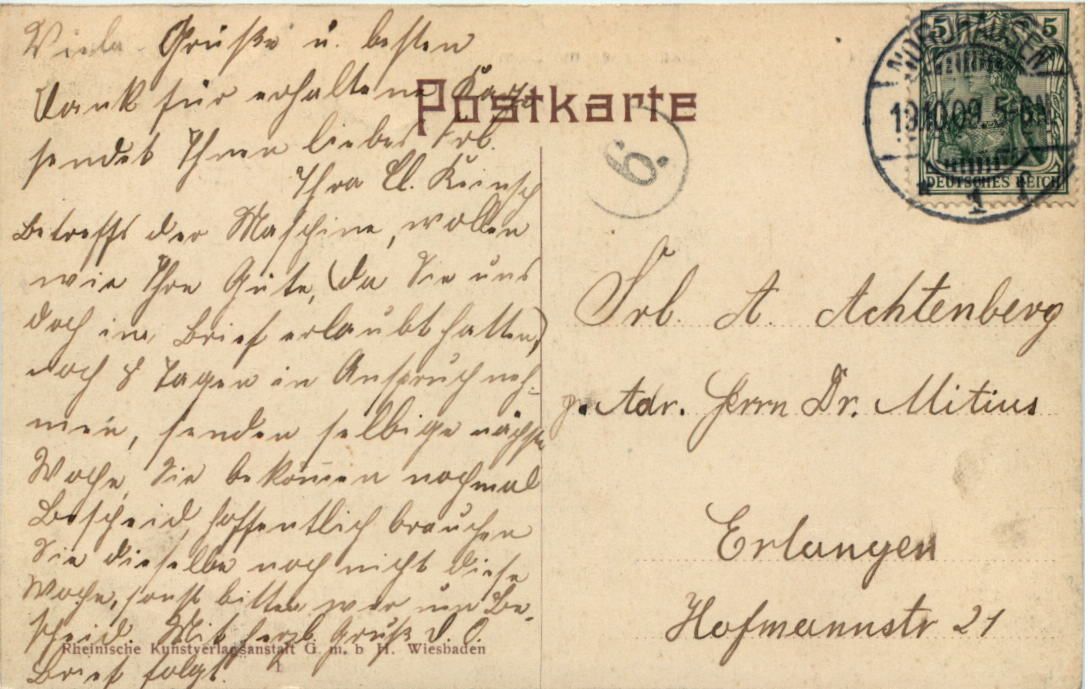 Viele Grüße u. besten
Dank für erhaltene Karte
sendet Ihnen liebes Frl.
Ihre Cl.
Betreffs der Maschine, wollen
wir Ihre Güte, (da Sie uns
doch im Brief erlaubt hatten)
noch 8 Tagen in Anspruch neh-
men, senden selbige nächste
Woche, Sie bekom̄en nochmal
Bescheid, hoffentlich brauchen
Sie dieselbe noch nicht diese
Woche, sonst bitten wir um Be-
scheid. Mit herzl. Gruß d. O.
Brief folgt.
Rheinische Kunstverlagsanstalt G. m. b H. Wiesbaden
Postkarte
6.
5 5
DEUTSCHES REICH
NORDHAUSEN
19.10.09. 5-6N.
* 1 c
Frl. A. Achtenberg
p. Adr. Herrn Dr. Mitius
Erlangen
Hofmannstr 21